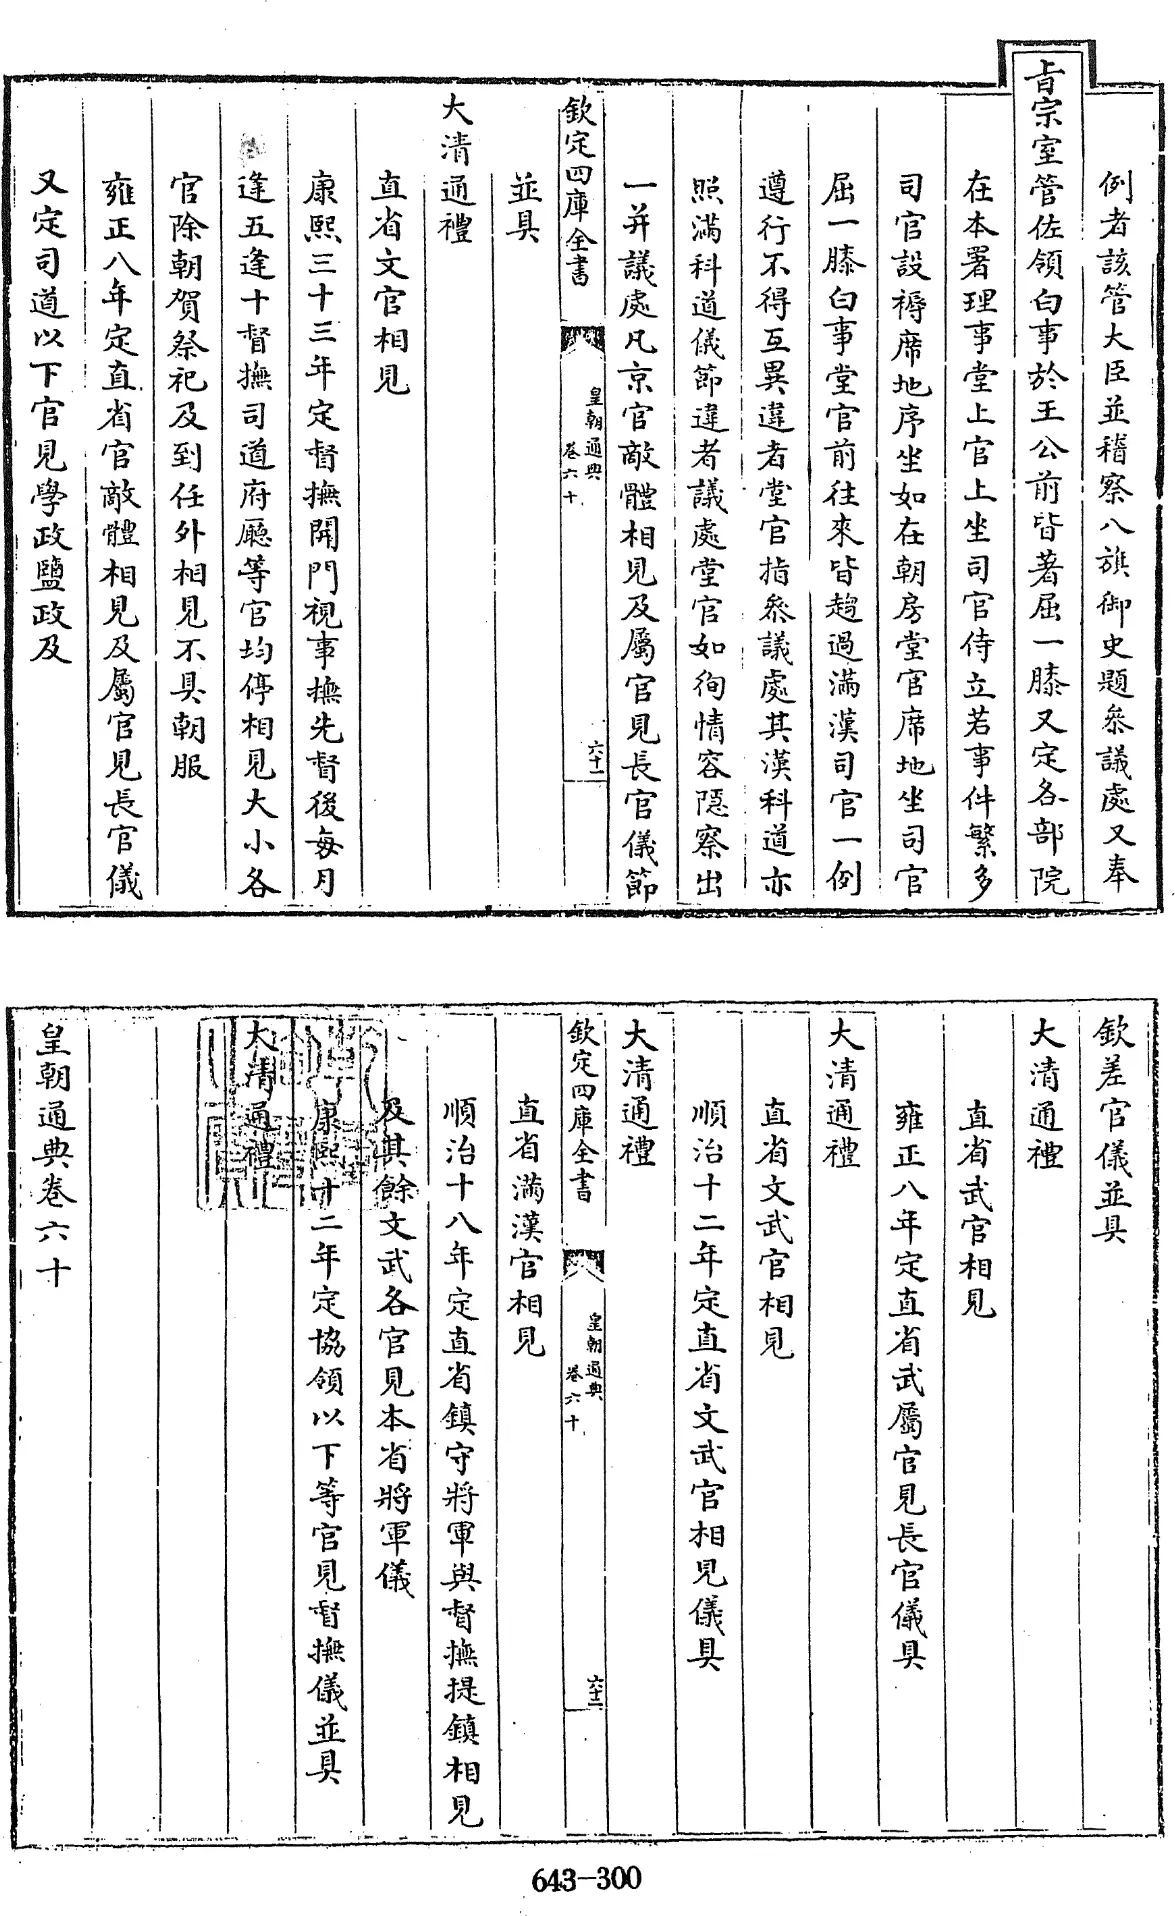 例者該管大臣並稽察八旗御史題叅議處又奉
旨宗室管佐領白事於王公前皆著屈一膝又定各部院
在本署理事堂上官上坐司官侍立若事件繁多
司官設褥席地序坐如在朝房堂官席地坐司官
屈一膝白事堂官前往來皆趨過滿漢司官一例
遵行不得互異違者堂官指叅議處其漢科道亦
照滿科道儀節違者議處堂官如徇情容隱察出
一并議處凡京官敵體相見及屬官見長官儀節
欽定四庫全書
皇朝通典
卷六十
六十一
並具
大清通禮
直省文官相見
康熙三十三年定督撫開門視事撫先督後每月
逢五逢十督撫司道府廳等官均停相見大小各
官除朝賀祭祀及到任外相見不具朝服
雍正八年定直省官敵體相見及屬官見長官儀
又定司道以下官見學政鹽政及
欽差官儀並具
大清通禮
直省武官相見
雍正八年定直省武屬官見長官儀具
大清通禮
直省文武官相見
順治十二年定直省文武官相見儀具
大清通禮
欽定四庫全書
皇朝通典
卷六十
六十二
直省滿漢官相見
順治十八年定直省鎮守將軍與督撫提鎮相見
及其餘文武各官見本省將軍儀
康熙十二年定協領以下等官見督撫儀並具
大清通禮
皇朝通典卷六十
643-300